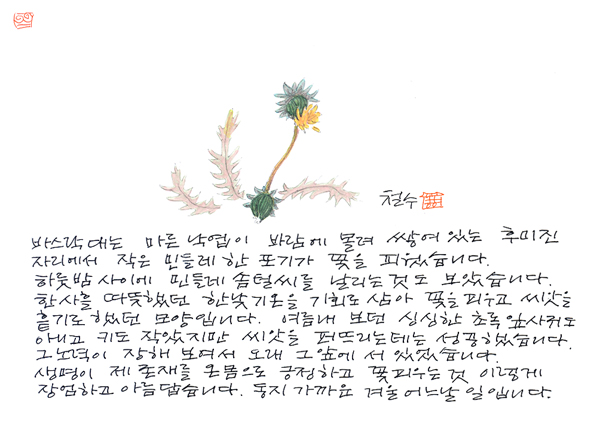 철수
바스락대는 마른 낙엽이 바람에 몰려 쌓여 있는 후미진
자리에서 작은 민들레 한 포기가 꽃을 피웠습니다.
하룻밤 사이에 민들레 솜털씨를 날리는 것도 보았습니다.
한사흘 따뜻했던 한낮 기온을 기회로 삼아 꽃을 피우고 씨앗을
흩기로 했던 모양입니다. 여름내 보던 싱싱한 초록 잎사귀도
아니고 키도 작았지만 씨앗을 퍼뜨리는데는 성공했습니다.
그 노력이 장해 보여서 오래 그 앞에 서 있었습니다.
생명이 제 존재를 온몸으로 긍정하고 꽃피우는 것 이렇게
장엄하고 아름답습니다. 동지 가까운 겨울 어느날 일입니다.